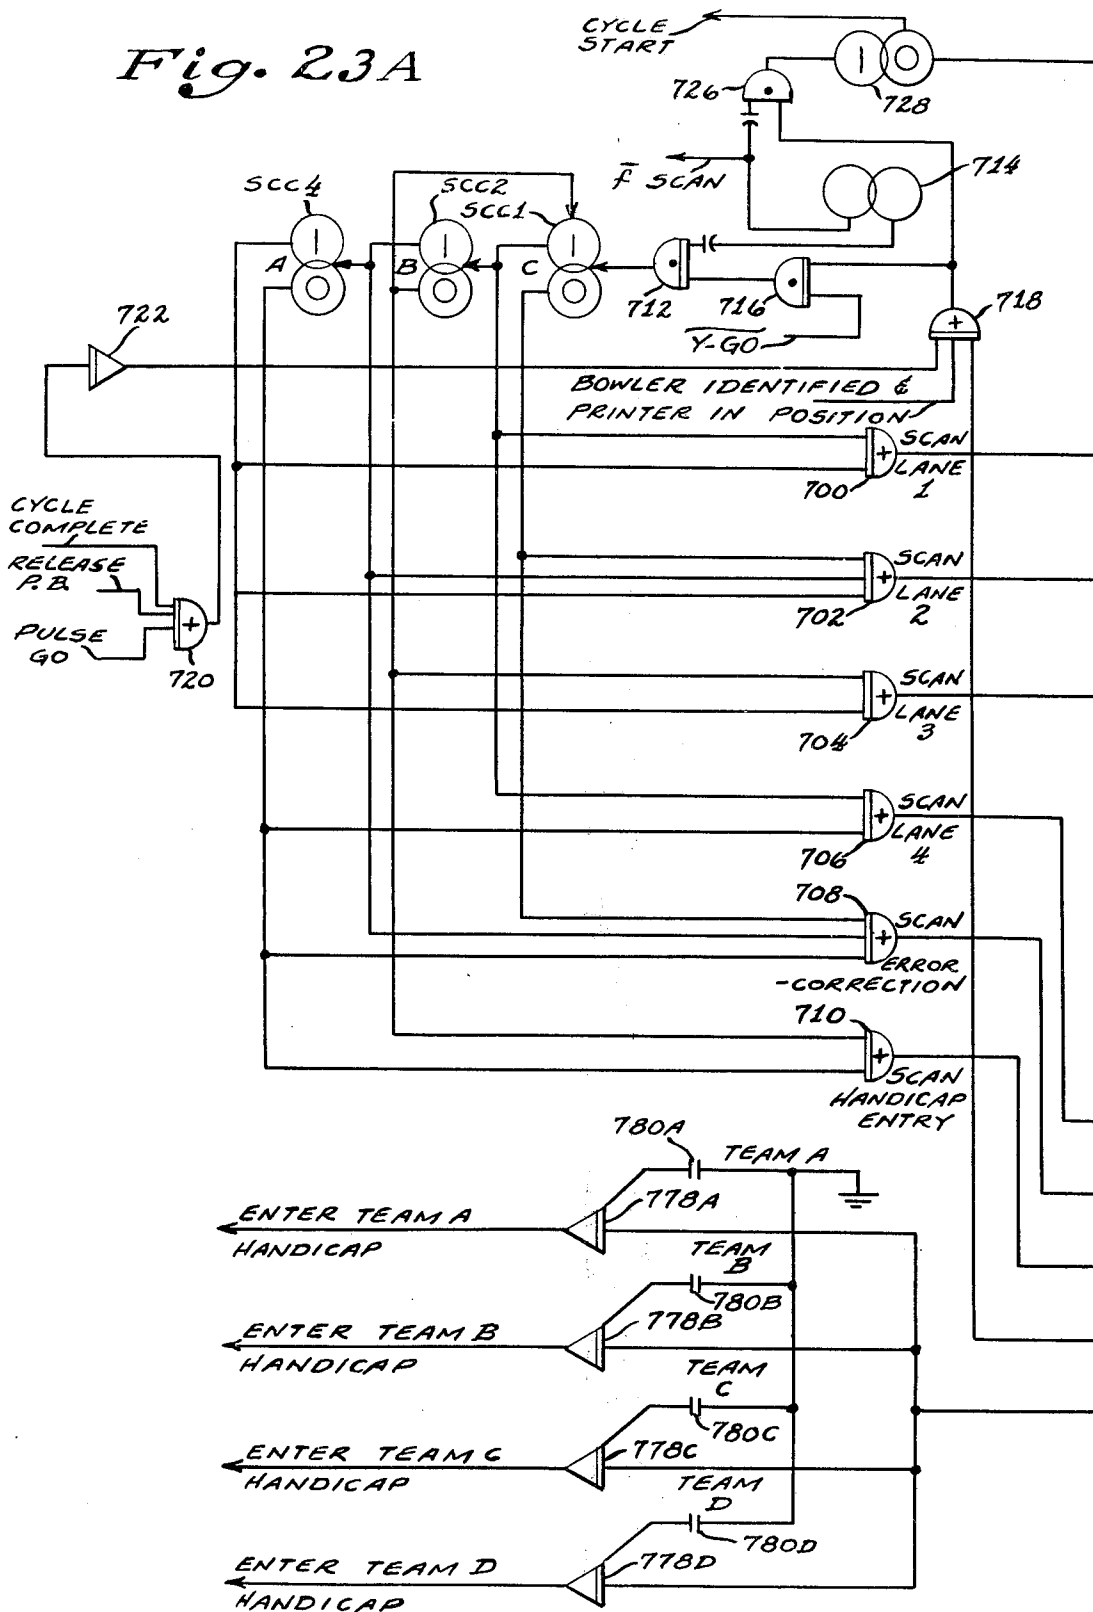 Fig. 23A
CYCLE
START
726
728
f̄ SCAN
714
SCC4
SCC2
SCC1
A
B
C
712
716
718
Y-GO
722
BOWLER IDENTIFIED &
PRINTER IN POSITION
SCAN
LANE
1
700
CYCLE
COMPLETE
RELEASE
P.B.
PULSE
GO
720
SCAN
LANE
2
702
SCAN
LANE
3
704
SCAN
LANE
4
706
708
SCAN
ERROR
-CORRECTION
710
SCAN
HANDICAP
ENTRY
780A
TEAM A
778A
ENTER TEAM A
HANDICAP
TEAM
B
780B
778B
ENTER TEAM B
HANDICAP
TEAM
C
780C
778C
ENTER TEAM C
HANDICAP
TEAM
D
780D
778D
ENTER TEAM D
HANDICAP